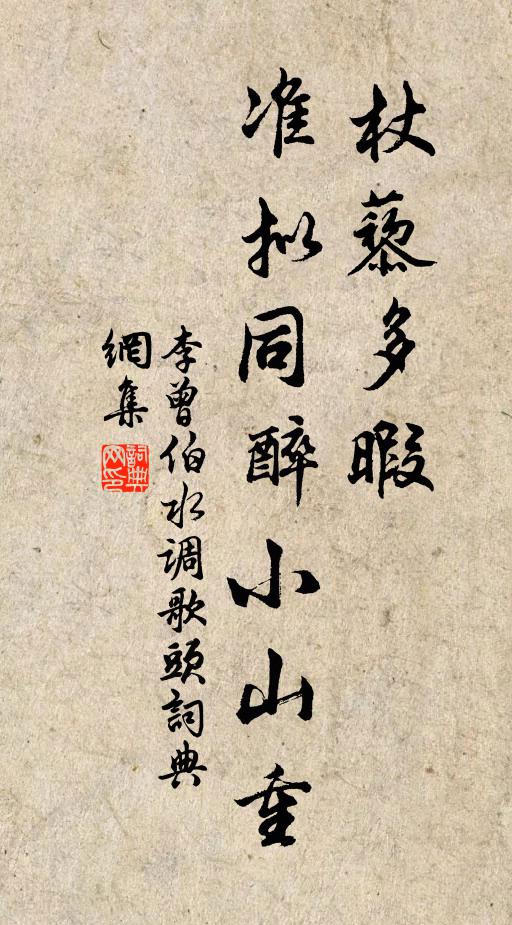 杖藜多暇
准拟同醉小山重
李曾伯水调歌頭詞典
網集
詞典
网印